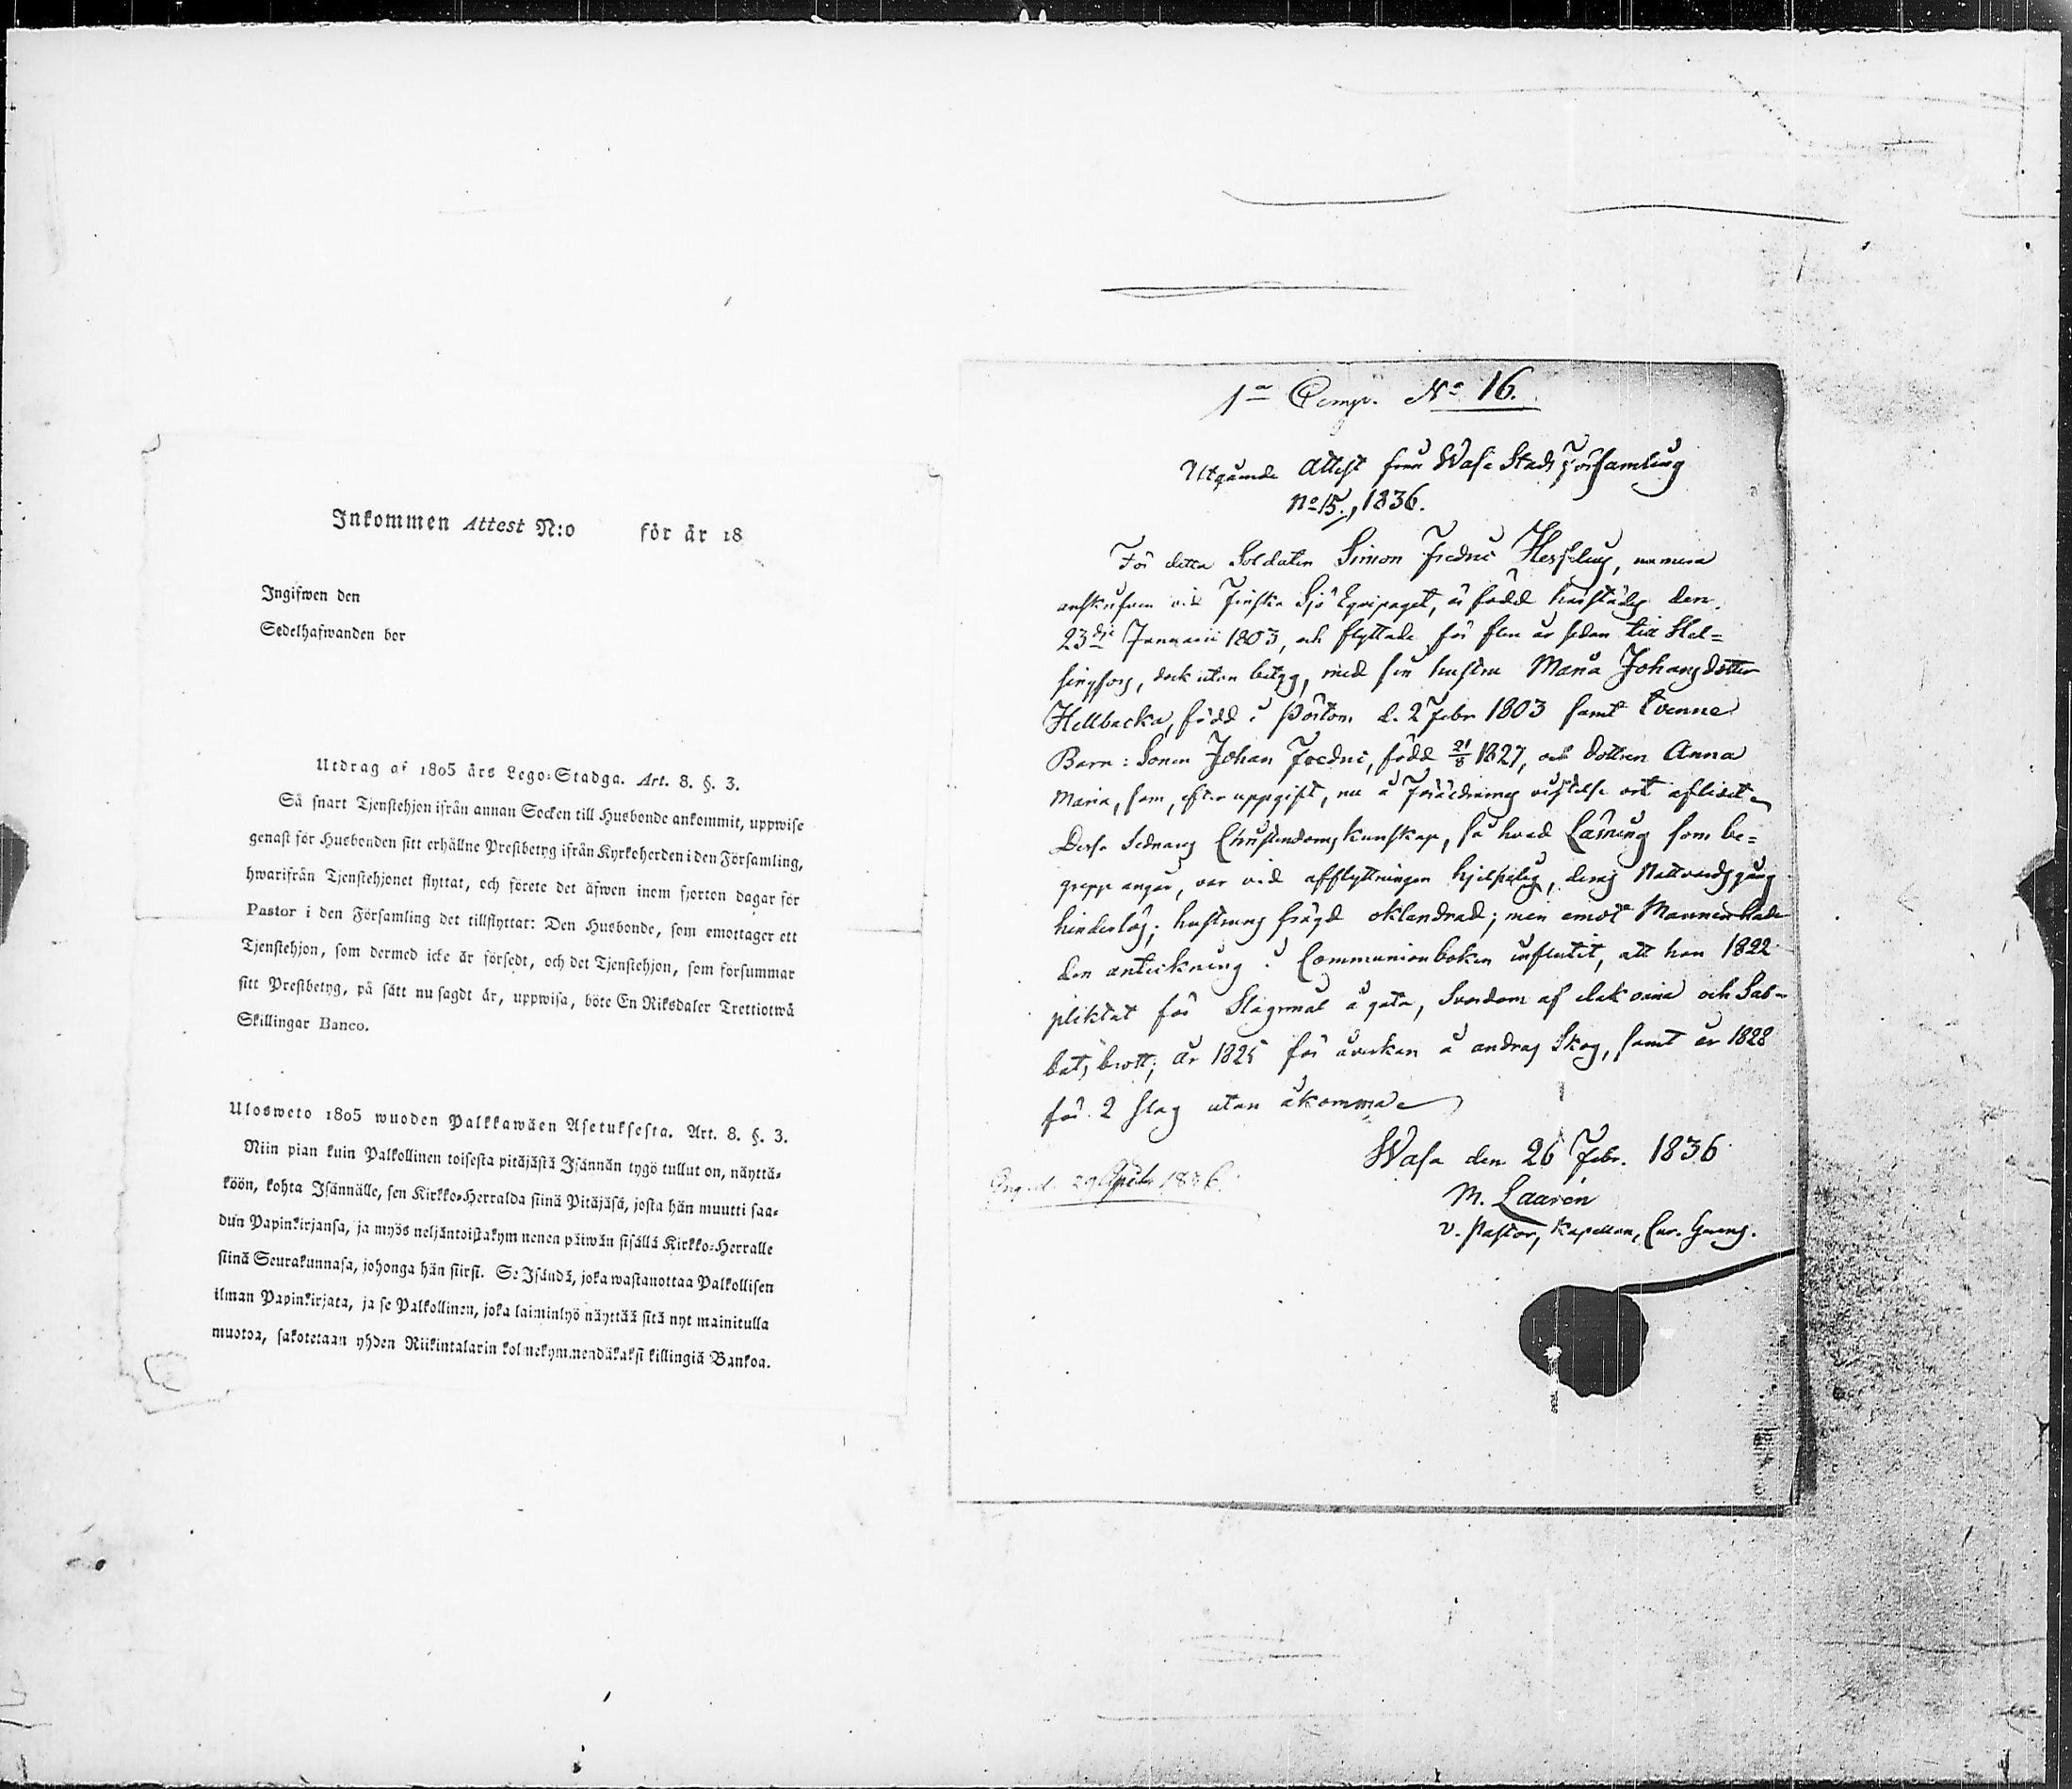 Inkommen Attest N:o för år 18
Ingifwen den
Sedelhafwanden bor
Utdrag af 1805 års Lego-Stadga. Art. 8. §. 3.
Så snart Tjenstehjon ifrån annan Socken till Husbonde ankommit, uppwise
genast för Husbonden sitt erhållne Prestbetyg ifrån Kyrkoherden i den Församling,
hwarifrån Tjenstehjonet flyttat, och förete det äfwen inom fjorton dagar för
Pastor i den Församling det tillflyttat: Den Husbonde, som emottager ett
Tjenstehjon, som dermed icke är försedt, och det Tjenstehjon, som försummar
sitt Prestbetyg, på sätt nu sagdt är, uppwisa, böte En Riksdaler Trettiotwå
Skillingar Banco.
Ulosweto 1805 wuoden Palkkawäen Asetuksesta. Art. 8. §. 3.
Niin pian kuin Palkollinen toisesta pitäjästä Isännän tygö tullut on, näyttä-
köön, kohta Isännälle, sen Kirkko-Herralda siinä Pitäjäsä, josta hän muutti saa-
dun Papinkirjansa, ja myös neljäntoistakymmenen päiwän sisällä Kirkko-Herralle
siinä Seurakunnasa, johonga hän siirsi. Se Isändä, joka wastanottaa Palkollisen
ilman Papinkirjata, ja se Palkollinen, joka laiminlyö näyttää sitä nyt mainitulla
muotoa, sakotetaan yhden Riikintalarin kolmekymmendäkaksi killingiä Bankoa.
1a Comp. No 16.
Utgående Attest från Wasa Stads Församling
No 15., 1836.
För detta Soldaten Simon Fredric Hessling, numera
vid Finska Sjö Equipaget, är född härstädes den
23dje Januarii 1803, och flyttade för flere år sedan till Hel-
singfors, dock utan betyg, med sin hustru Maria Johansdotter
Hellbacka, född i Pörtom d. 2 Febr 1803 samt tvenne
Barn: Sonen Johan Fredric, född 21/8 1827, och dottren Anna
Maria, som, efter uppgift, nu å Föräldrarnes vistelse ort aflidit.
Dessa Sednares Christendoms kunskap, så hvad Läsning som be-
grepp angår, var vid afflyttningen hjelpelig, deras Nattvardsgång
hinderlös; hustruns frägd oklandrad; men emot Mannen hade
den anteckning i Communionboken influtit, att han 1822
pliktat för Slagsmål å gata, Svordom af elak vana och Sab-
bats brott; år 1825 för åverkan å andras Skog, samt år 1828
för 2 slag utan åkomma
Wasa den 26 Febr. 1836
M. Laurén
v. Pastor, Kapellan,
29 April 1836.